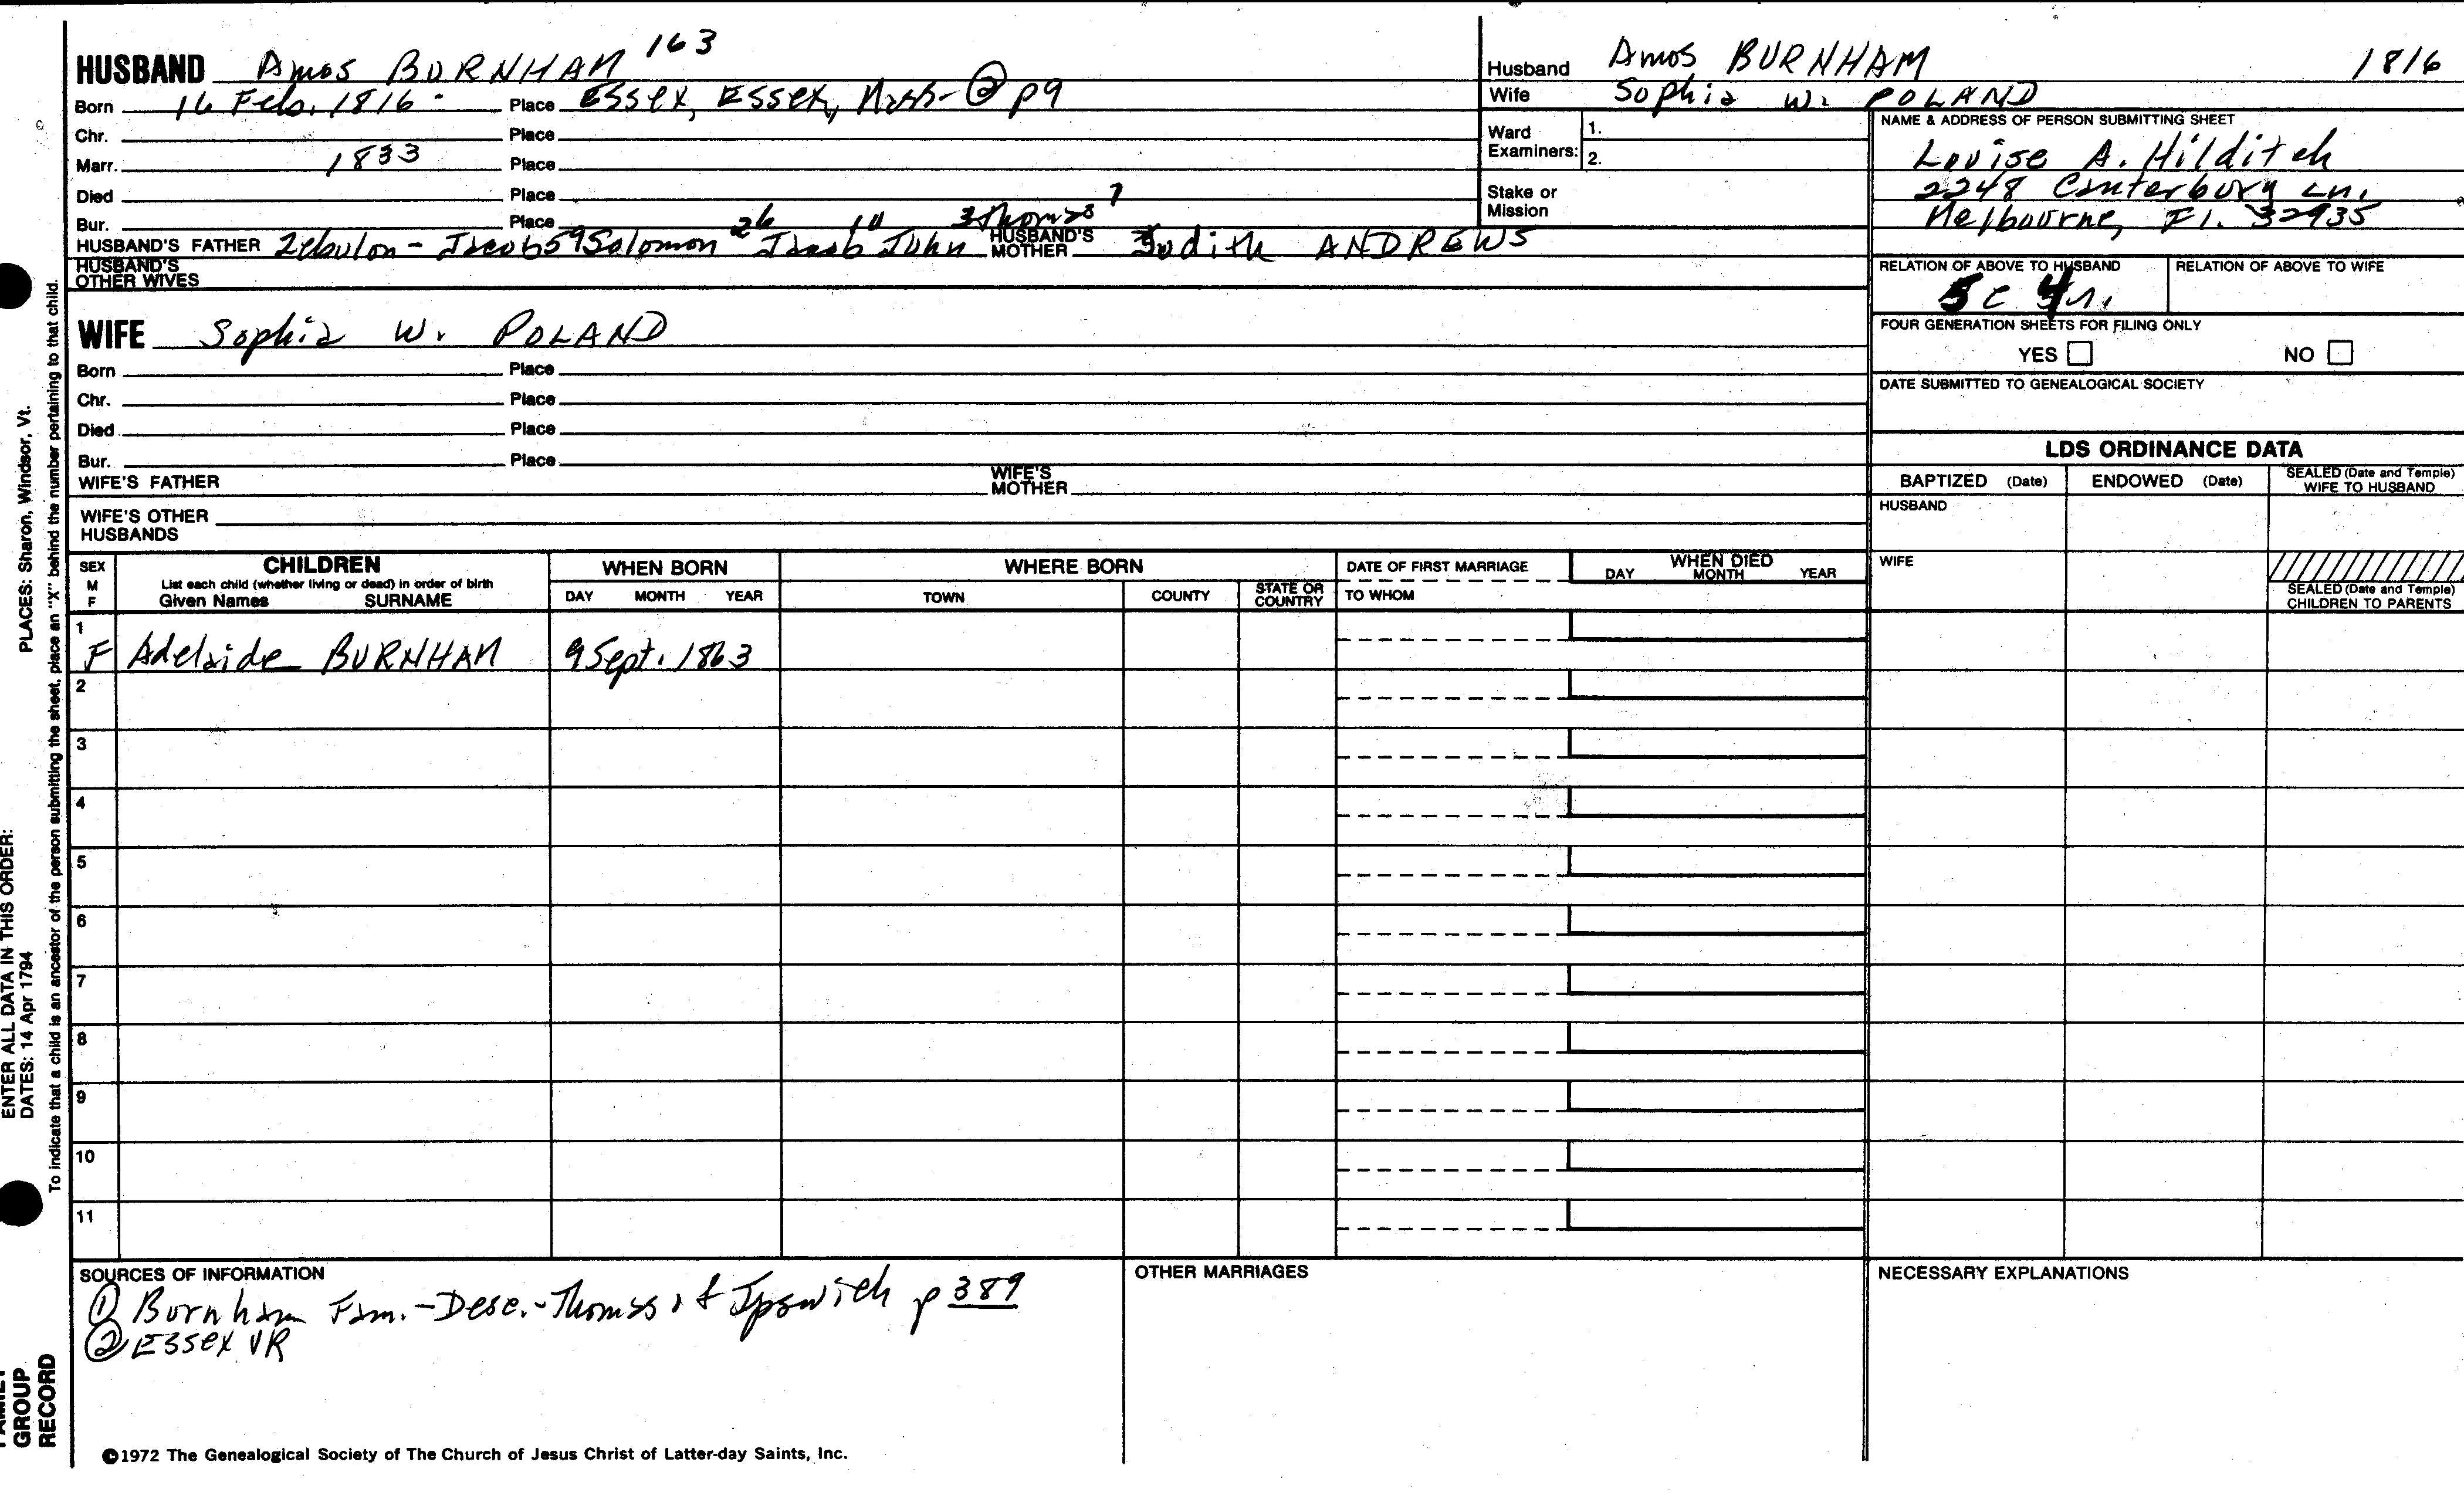 HUSBAND Amos BURNHAM 163
Born 16 Feb. 1816 Place Essex, Essex, Mass- ② p9
Chr. Place
Marr. 1833 Place
Died Place
Bur. Place
HUSBAND'S FATHER Zebulon - Jacob 59 Solomon 26 Jacob 10 John 3 Thomas 1 HUSBAND'S MOTHER Judith ANDREWS
HUSBAND'S OTHER WIVES
WIFE Sophia W. POLAND
Born Place
Chr. Place
Died Place
Bur. Place
WIFE'S FATHER WIFE'S MOTHER
WIFE'S OTHER HUSBANDS
Husband Amos BURNHAM 1816
Wife Sophia W. POLAND
Ward Examiners: 1. 2.
Stake or Mission
NAME & ADDRESS OF PERSON SUBMITTING SHEET
Louise A. Hilditch
2248 Canterbury Ln.
Melbourne, Fl. 32935
RELATION OF ABOVE TO HUSBAND RELATION OF ABOVE TO WIFE
5 C 4 r.
FOUR GENERATION SHEETS FOR FILING ONLY
YES NO
DATE SUBMITTED TO GENEALOGICAL SOCIETY
LDS ORDINANCE DATA
BAPTIZED (Date) ENDOWED (Date) SEALED (Date and Temple) WIFE TO HUSBAND
HUSBAND
WIFE
SEALED (Date and Temple) CHILDREN TO PARENTS
SEX M F
CHILDREN
List each child (whether living or dead) in order of birth
Given Names SURNAME
WHEN BORN
DAY MONTH YEAR
WHERE BORN
TOWN COUNTY STATE OR COUNTRY
DATE OF FIRST MARRIAGE
TO WHOM
WHEN DIED
DAY MONTH YEAR
1 F Adelaide BURNHAM 9 Sept. 1863
2
3
4
5
6
7
8
9
10
11
SOURCES OF INFORMATION
① Burnham Fam. - Desc. - Thomas of Ipswich p 389
② ESSEX VR
OTHER MARRIAGES
NECESSARY EXPLANATIONS
©1972 The Genealogical Society of The Church of Jesus Christ of Latter-day Saints, Inc.
GROUP
RECORD
ENTER ALL DATA IN THIS ORDER:
DATES: 14 Apr 1794 PLACES: Sharon, Windsor, Vt.
To indicate that a child is an ancestor of the person submitting the sheet, place an "X" behind the number pertaining to that child.